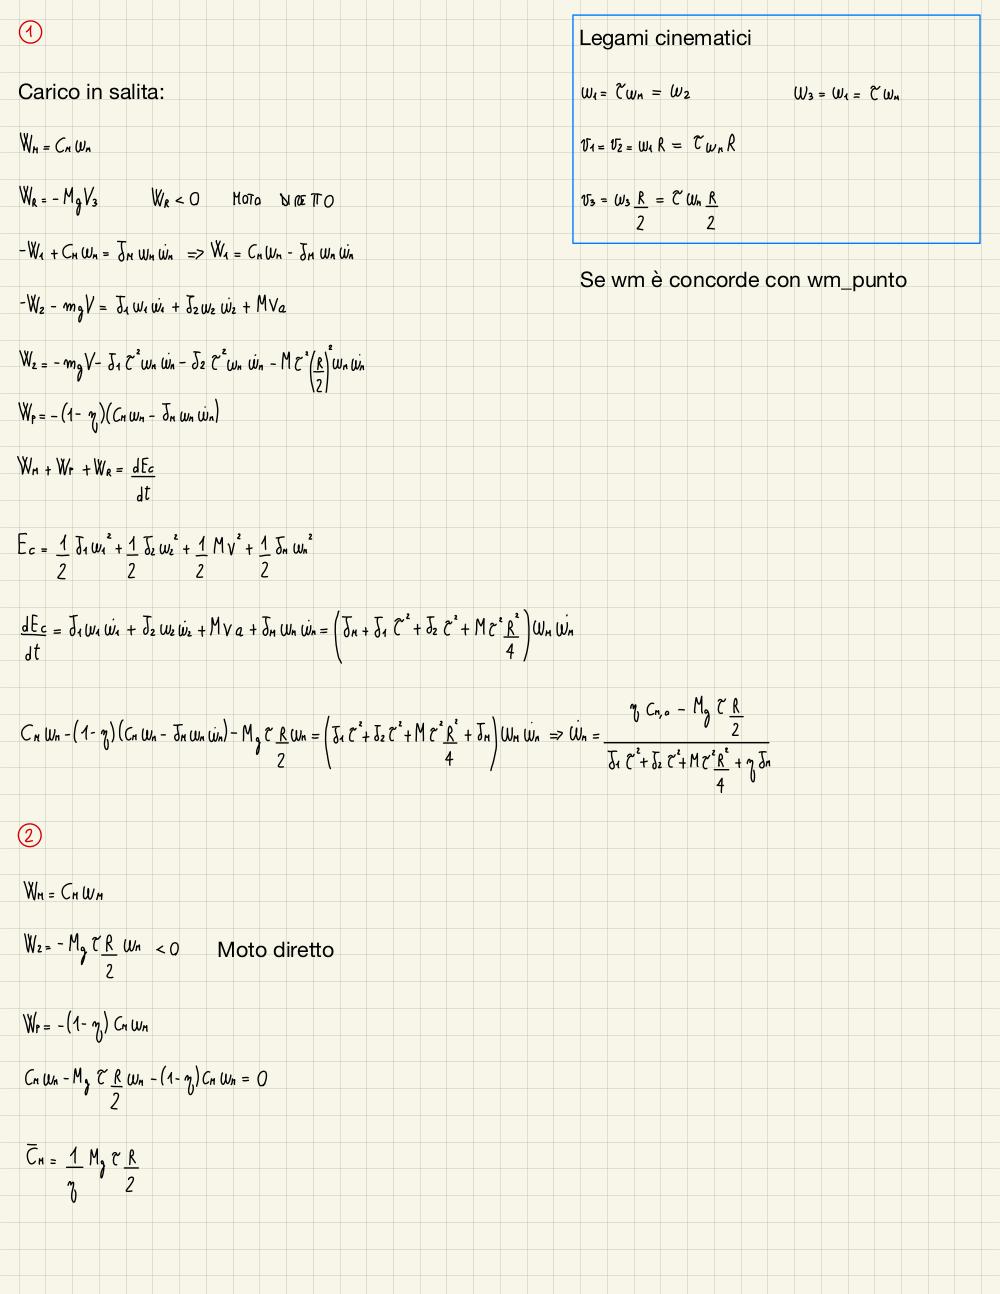 ①
Carico in salita:
W_M = C_M ω_M
W_R = - M g V_3 W_R < 0 MOTO DIRETTO
-W_1 + C_M ω_M = J_M ω_M ω̇_M => W_1 = C_M ω_M - J_M ω_M ω̇_M
-W_2 - m g V = J_1 ω_1 ω̇_1 + J_2 ω_2 ω̇_2 + M V a
W_2 = - m g V - J_1 τ² ω_M ω̇_M - J_2 τ² ω_M ω̇_M - M τ² (R/2)² ω_M ω̇_M
W_P = -(1-η)(C_M ω_M - J_M ω_M ω̇_M)
W_M + W_P + W_R = dE_c/dt
E_c = 1/2 J_1 ω_1² + 1/2 J_2 ω_2² + 1/2 M V² + 1/2 J_M ω_M²
dE_c/dt = J_1 ω_1 ω̇_1 + J_2 ω_2 ω̇_2 + M V a + J_M ω_M ω̇_M = (J_M + J_1 τ² + J_2 τ² + M τ² R²/4) ω_M ω̇_M
C_M ω_M - (1-η)(C_M ω_M - J_M ω_M ω̇_M) - M g τ R/2 ω_M = (J_1 τ² + J_2 τ² + M τ² R²/4 + J_M) ω_M ω̇_M => ω̇_M = (η C_M,0 - M g τ R/2)/(J_1 τ² + J_2 τ² + M τ² R²/4 + η J_M)
Legami cinematici
ω_1 = τ ω_M = ω_2 ω_3 = ω_1 = τ ω_M
v_1 = v_2 = ω_1 R = τ ω_M R
v_3 = ω_3 R/2 = τ ω_M R/2
Se wm è concorde con wm_punto
②
W_M = C_M ω_M
W_2 = - M g τ R/2 ω_M < 0 Moto diretto
W_P = -(1-η) C_M ω_M
C_M ω_M - M g τ R/2 ω_M - (1-η) C_M ω_M = 0
C̅_M = 1/η M g τ R/2